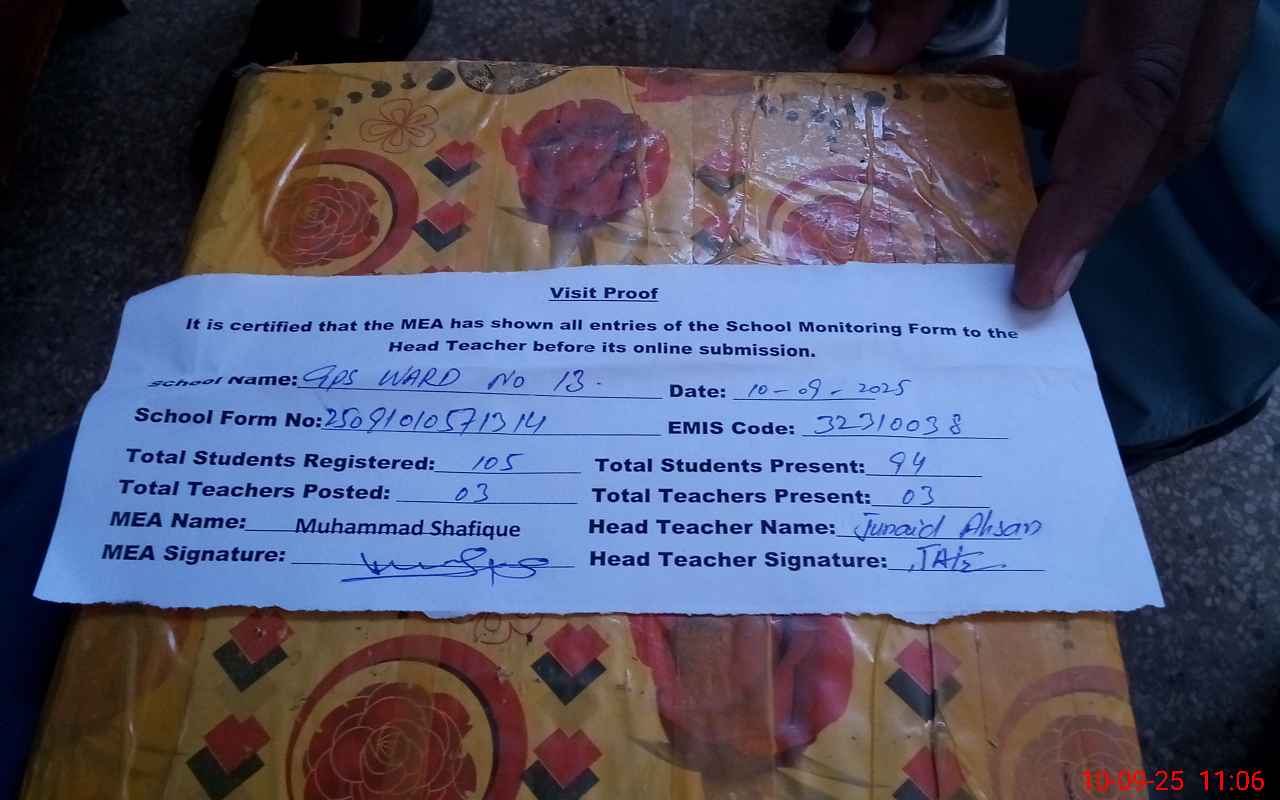 Visit Proof
It is certified that the MEA has shown all entries of the School Monitoring Form to the
Head Teacher before its online submission.
School Name: GPS WARD No 13.
Date: 10-09-2025
School Form No: 2509101057 1314
EMIS Code: 32310038
Total Students Registered: 105
Total Students Present: 94
Total Teachers Posted: 03
Total Teachers Present: 03
MEA Name: Muhammad Shafique
Head Teacher Name: Junaid Ahsan
MEA Signature:
Head Teacher Signature:
10-09-25 11:06